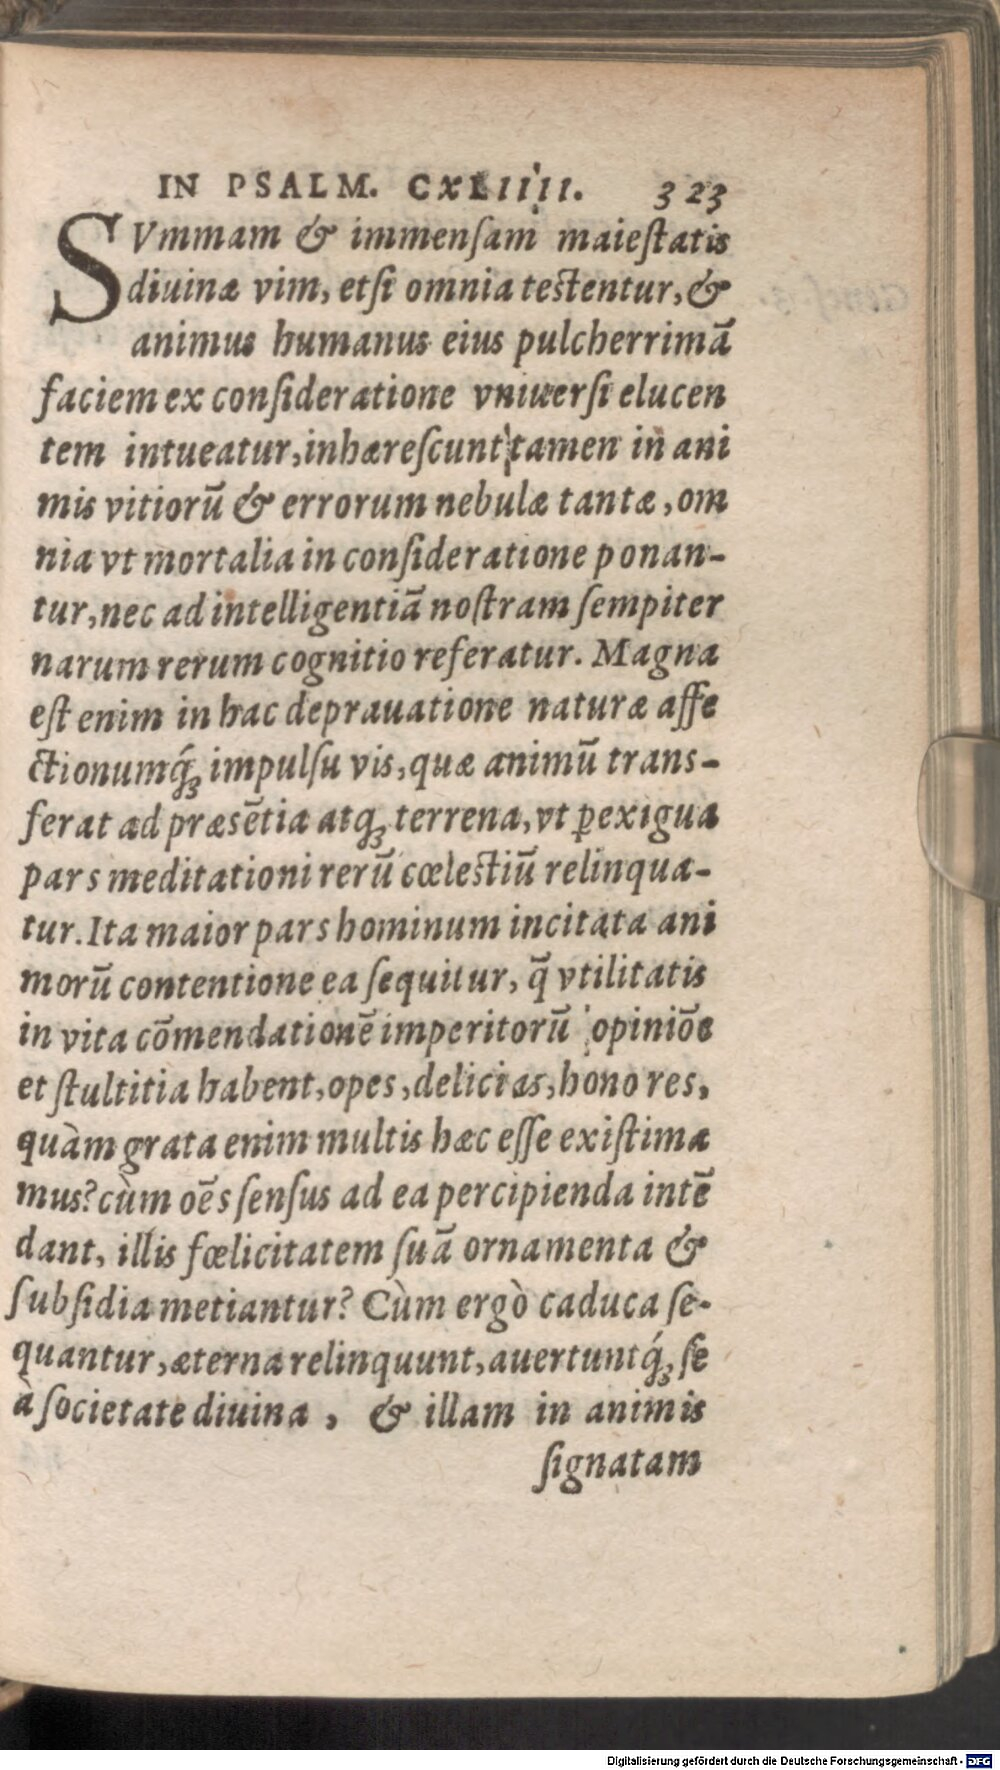 IN PSALM. CXLIIII. 323
SVmmam & immensam maiestatis
diuinæ vim, etsi omnia testentur, &
animus humanus eius pulcherrimā
faciem ex consideratione vniuersi elucen
tem intueatur, inhærescunt tamen in ani
mis vitiorū & errorum nebulæ tantæ, om
nia vt mortalia in consideratione ponan-
tur, nec ad intelligentiā nostram sempiter
narum rerum cognitio referatur. Magna
est enim in hac deprauatione naturæ affe
ctionumq́; impulsu vis, quæ animū trans-
ferat ad præsētia atq; terrena, vt ꝑexigua
pars meditationi rerū cœlestiū relinqua-
tur. Ita maior pars hominum incitata ani
morū contentione ea sequitur, q̄ vtilitatis
in vita cōmendationē imperitorū opiniōe
et stultitia habent, opes, delicias, honores,
quàm grata enim multis hæc esse existima
mus? cùm oēs sensus ad ea percipienda intē
dant, illis fœlicitatem suā ornamenta &
subsidia metiantur? Cùm ergò caduca se-
quantur, æterna relinquunt, auertuntq́; se
à societate diuina, & illam in animis
signatam
Digitalisierung gefördert durch die Deutsche Forschungsgemeinschaft - DFG